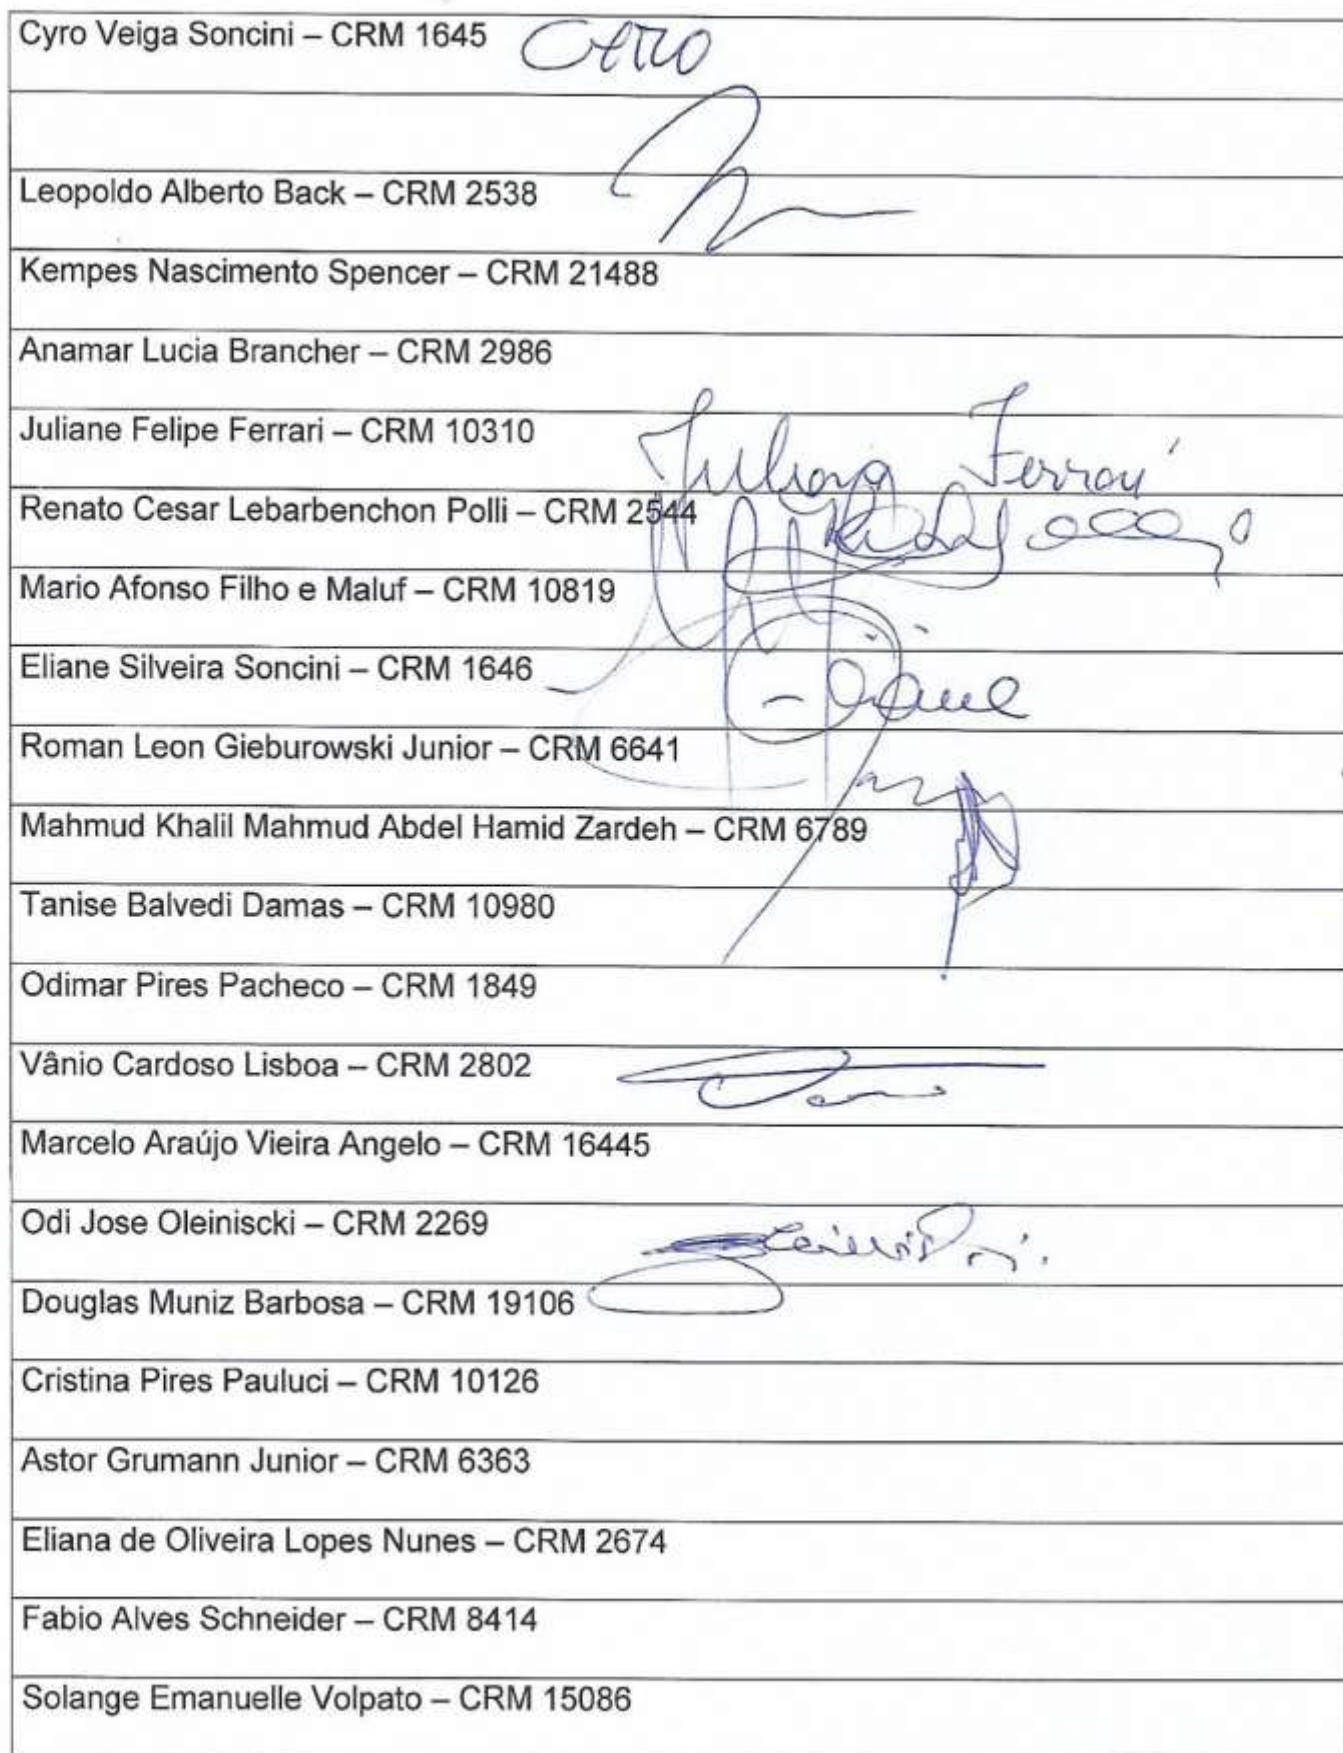 Cyro Veiga Soncini – CRM 1645
Leopoldo Alberto Back – CRM 2538
Kempes Nascimento Spencer – CRM 21488
Anamar Lucia Brancher – CRM 2986
Juliane Felipe Ferrari – CRM 10310
Ferrari
Renato Cesar Lebarbenchon Polli – CRM 2544
Mario Afonso Filho e Maluf – CRM 10819
Eliane Silveira Soncini – CRM 1646
Roman Leon Gieburowski Junior – CRM 6641
Mahmud Khalil Mahmud Abdel Hamid Zardeh – CRM 6789
Tanise Balvedi Damas – CRM 10980
Odimar Pires Pacheco – CRM 1849
Vânio Cardoso Lisboa – CRM 2802
Marcelo Araújo Vieira Angelo – CRM 16445
Odi Jose Oleiniscki – CRM 2269
Douglas Muniz Barbosa – CRM 19106
Cristina Pires Pauluci – CRM 10126
Astor Grumann Junior – CRM 6363
Eliana de Oliveira Lopes Nunes – CRM 2674
Fabio Alves Schneider – CRM 8414
Solange Emanuelle Volpato – CRM 15086